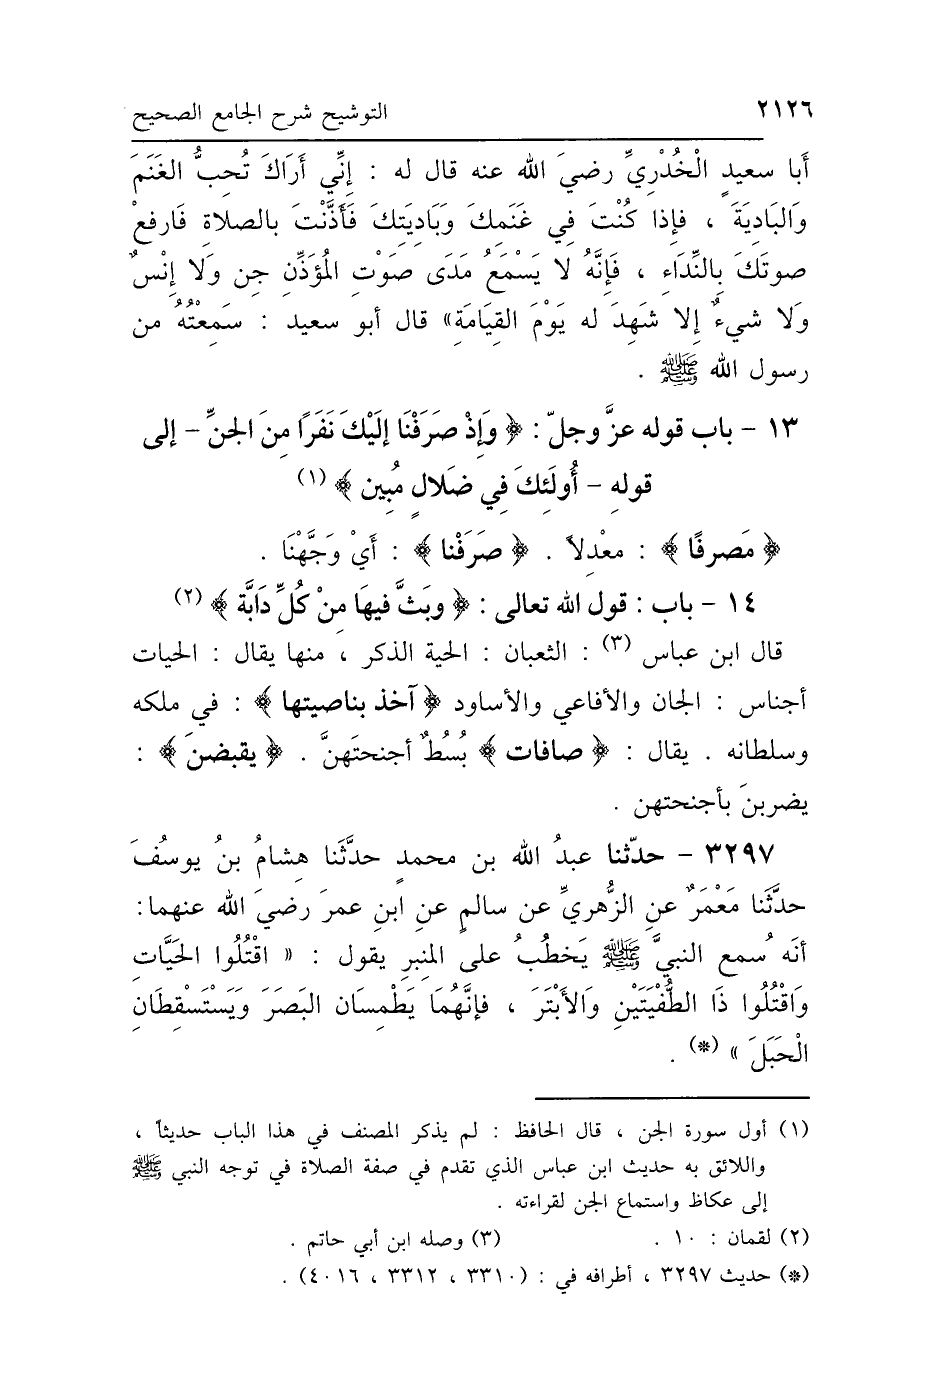 ٢١٢٦ التوشيح شرح الجامع الصحيح
أَبا سعيدٍ الْخُدْرِيِّ رضيَ الله عنه قال له : إنِّي أَرَاكَ تُحِبُّ الغَنَمَ
وَالبَادِيَةَ ، فإذا كُنْتَ فِي غَنَمِكَ وَبَادِيَتِكَ فَأَذَّنْتَ بالصلاةِ فَارفعْ
صوتَكَ بِالنِّدَاءِ ، فَإِنَّهُ لا يَسْمَعُ مَدَى صَوْتِ المُؤَذِّنِ جن وَلا إِنْسٌ
وَلا شيءٌ إلا شَهِدَ له يَوْمَ القِيَامَةِ» قال أبو سعيد : سَمِعْتُهُ من
رسول الله ﷺ .
١٣ - باب قوله عزَّ وجلّ : ﴿ وَإِذْ صَرَفْنَا إِلَيْكَ نَفَرًا مِنَ الجنِّ - إلى
قولهِ - أُولَئِكَ فِي ضَلالٍ مُبِين ﴾ (١)
﴿ مَصرِفًا ﴾ : معْدِلاً . ﴿ صَرَفْنا ﴾ : أَيْ وَجَّهْنَا .
١٤ - باب : قول الله تعالى : ﴿ وبَثَّ فيهَا مِنْ كُلِّ دَابَّة ﴾ (٢)
قال ابن عباس (٣) : الثعبان : الحية الذكر ، منها يقال : الحيات
أجناس : الجان والأفاعي والأساود ﴿ آخذ بناصيتها ﴾ : في ملكه
وسلطانه . يقال : ﴿ صافات ﴾ بُسُطٌ أجنحتَهنَّ . ﴿ يقبضنَ ﴾ :
يضربنَ بأجنحتهن .
٣٢٩٧ - حدّثنا عبدُ الله بن محمدٍ حدَّثَنا هِشامُ بنُ يوسُفَ
حدَّثَنا مَعْمَرٌ عنِ الزُّهريِّ عن سالمٍ عنِ ابنِ عمرَ رضيَ الله عنهما:
أنَه سمع النبيَّ ﷺ يَخطُبُ على المنبرِ يقول : « اقْتُلُوا الحَيَّاتِ
وَاقْتُلُوا ذَا الطُّفْيَتَيْنِ وَالأَبْتَرَ ، فإنَّهُمَا يَطْمِسَانِ البَصَرَ وَيَسْتَسْقِطَانِ
الْحَبَلَ » (*) .
(١) أول سورة الجن ، قال الحافظ : لم يذكر المصنف في هذا الباب حديثاً ،
واللائق به حديث ابن عباس الذي تقدم في صفة الصلاة في توجه النبي ﷺ
إلى عكاظ واستماع الجن لقراءته .
(٢) لقمان : ١٠ . (٣) وصله ابن أبي حاتم .
(*) حديث ٣٢٩٧ ، أطرافه في : (٣٣١٠ ، ٣٣١٢ ، ٤٠١٦) .